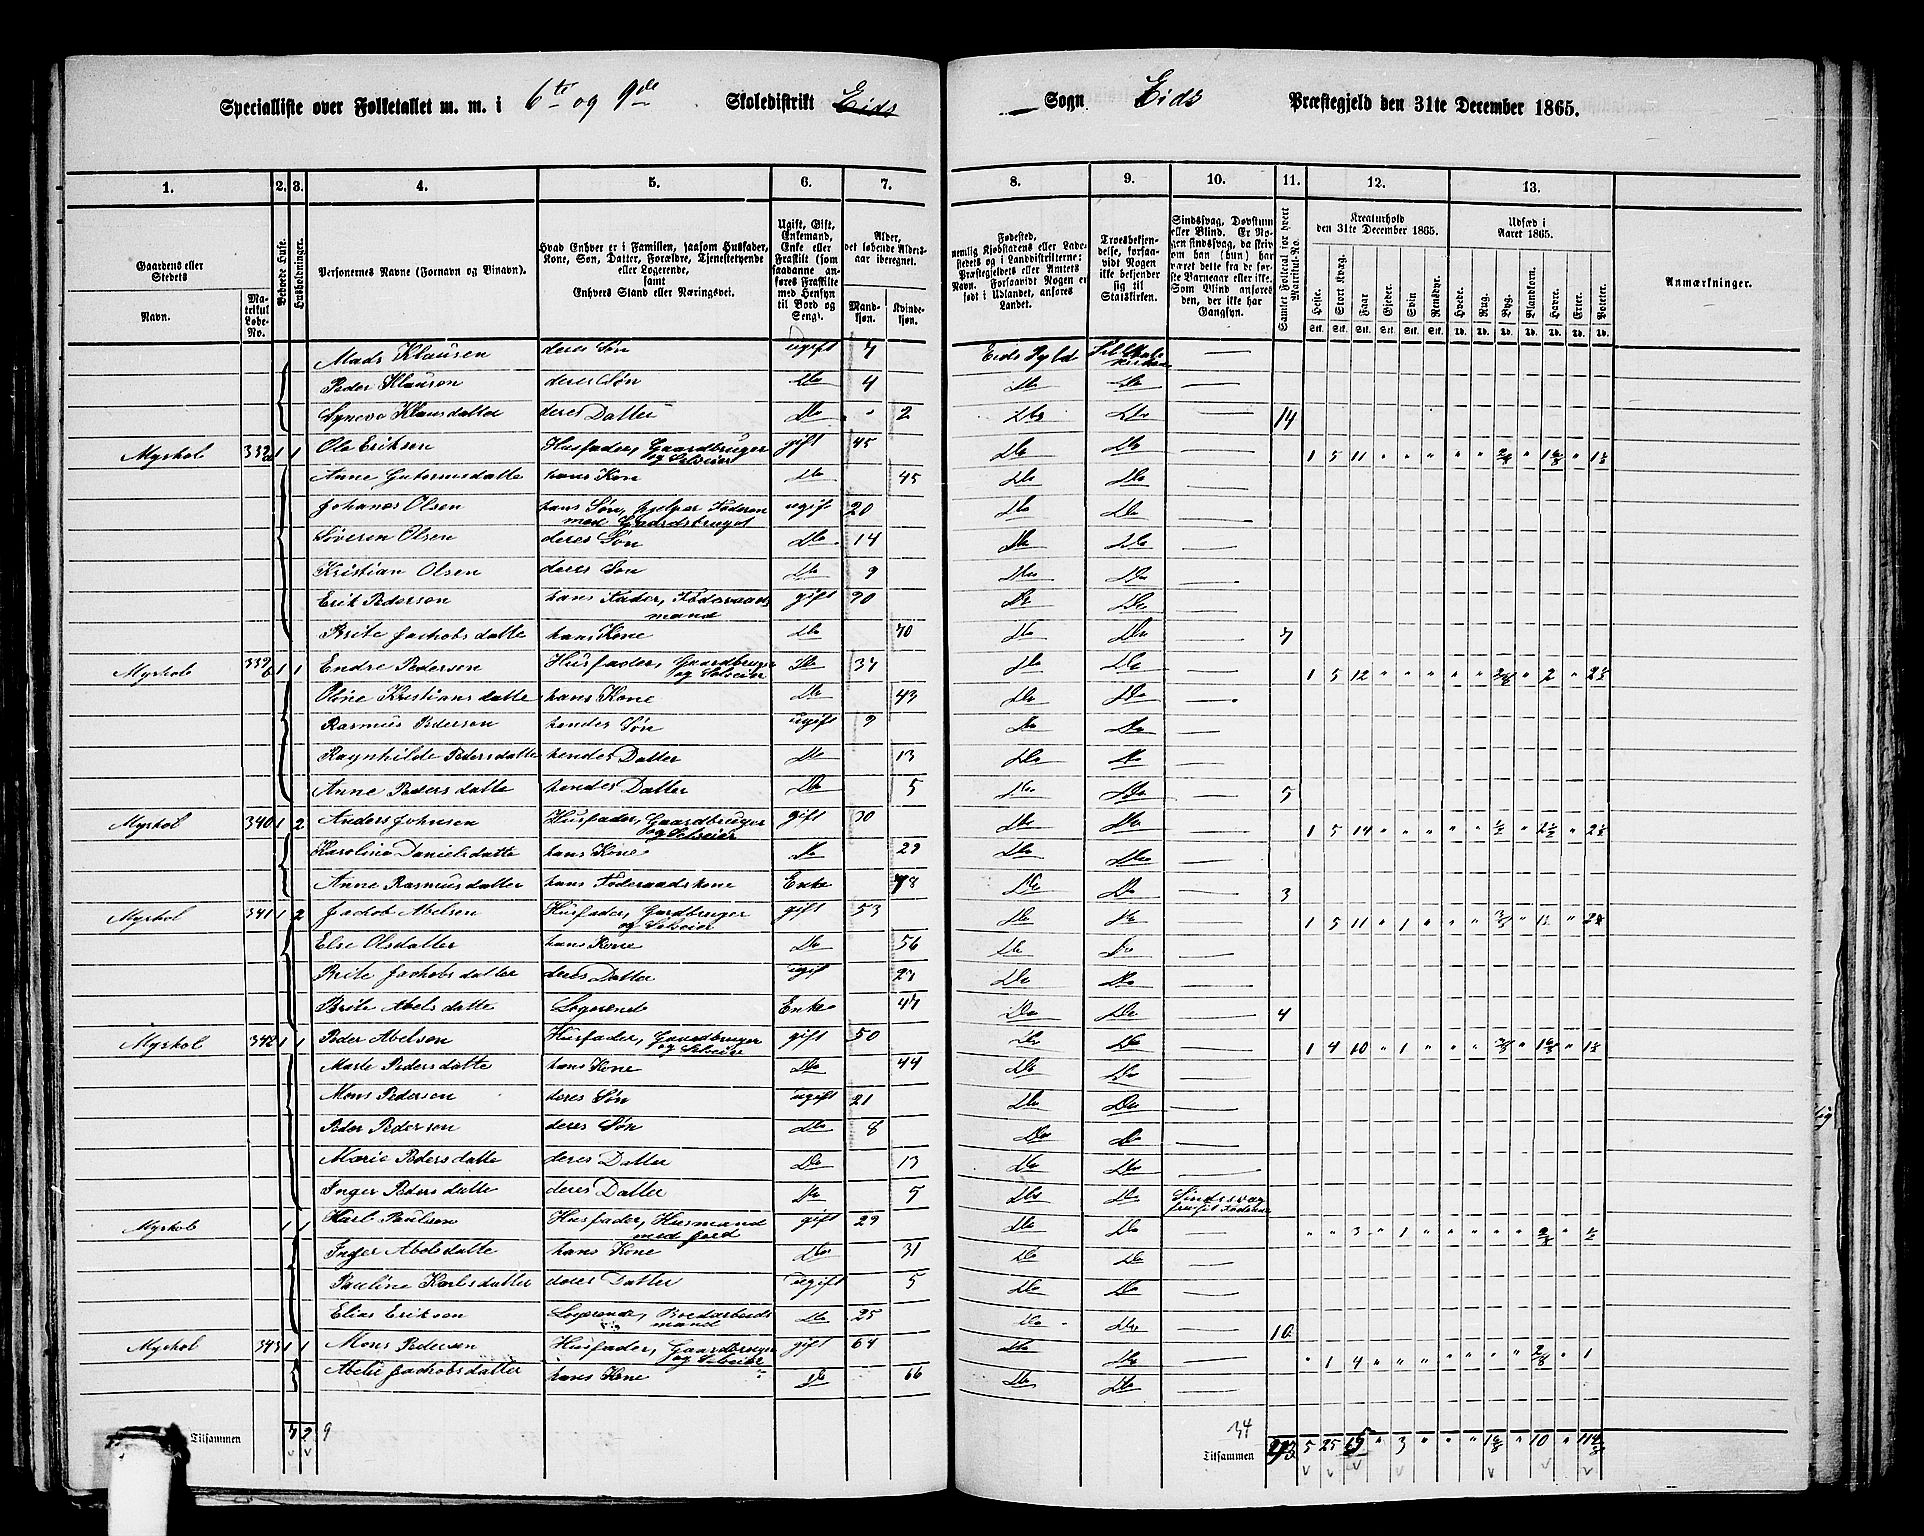 Specialliste over Folketallet m. m. i 6te og 9de Skoledistrikt Eids
Sogn Eids Præstegjeld den 31te December 1865.
1. 2. 3. 4. 5. 6. 7. 8. 9. 10. 11. 12. 13.
Gaardens eller Stedets Navn. Matrikul Løbe-No. Beboede Huse. Husholdninger. Personernes Navne (Fornavn og Binavn). Hvad Enhver er i Familien, saasom Husfader, Kone, Søn, Datter, Forældre, Tjenestetyende eller Logerende, samt Enhvers Stand eller Næringsvei.
Ugift, Gift, Enkemand, Enke eller Fraskilt (som saadanne anføres Fraskilte med Hensyn til Bord og Seng). Alder, det løbende Aldersaar iberegnet. Mandkjøn. Kvindekjøn.
Fødested, nemlig Kjøbstadens eller Ladestedets og i Landdistrikterne: Præstegjeldets eller Amtets Navn. Forsaavidt Nogen er født i Udlandet, anføres Landet.
Troesbekjendelse, forsaavidt Nogen ikke bekjender sig til Statskirken.
Sindssvag, Døvstum eller Blind. Er Nogen sindssvag, da skriv om han (hun) har været dette fra de første Barneaar eller ikke. Som Blind anføres den, der ikke har Gangsyn.
Samlet Folketal for hvert Matrikul-No.
Kreaturhold den 31te December 1865. Heste. Stort Kvæg. Faar. Gjeder. Svin. Rensdyr.
Udsæd i Aaret 1865. Hvede. Rug. Byg. Blandkorn. Havre. Erter. Poteter.
Anmærkninger.
Mads Klausen deres Søn ugift 7 Eids Pgld
Peder Klausen deres Søn Do 4 Do Do
Syneva Klausdatter deres Datter Do " 2 Do Do 14
Myrhol 339a 1 1 Ole Eriksen Husfader, Gaardbruger og Selveier gift 45 Do Do 1 5 11
Anne Guttormsdatte hans Kone Do 45 Do Do
Johanes Olsen hans Søn, hjelper Faderen med Gaardsbruget ugift 20 Do Do
Søveren Olsen deres Søn Do 14 Do Do
Kristian Olsen deres Søn Do 9 Do Do
Erik Pedersen hans Fader, Føderaadsmand gift 70 Do Do
Brite Jachobsdatte hans Kone Do 70 Do Do 7
Myrhol 339b 1 1 Endre Pedersen Husfader, Gaardbruger og Selveier Do 37 Do Do 1 5 12
Oline Kristiansdatte hans Kone Do 43 Do Do
Rasmus Pedersen hendes Søn ugift 9 Do Do
Ragnhilde Pedersdatte hendes Datter Do 13 Do Do
Anne Pedersdatte hendes Datter Do 5 Do Do 5
Myrhol 340 1 2 Anders Johnsen Husfader, Gaardbruger og Selveier gift 30 Do Do 1 5 14
Karolina Danielsdatte hans Kone Do 29 Do Do
Anne Rasmusdatter hans Føderaadskone Enke 78 Do Do 3
Myrhol 341 1 2 Jachob Abelsen Husfader, Gardbruger og Selveier gift 53 Do Do 1 5 11 " 1
Else Olsdatter hans Kone Do 56 Do Do
Brite Jachobsdatter deres Datter ugift 23 Do Do
Brite Abelsdatte Logerende Enke 47 Do Do 4
Myrhol 342 1 1 Peder Abelsen Husfader, Gaardbruger og Selveier gift 50 Do Do 1 4 10 " 1
Marte Pedersdatte hans Kone Do 44 Do Do
Mons Pedersen deres Søn ugift 21 Do Do
Peder Pedersen deres Søn Do 8 Do Do
Marie Pedersdatte deres Datter Do 13 Do Do
Inger Pedersdatte deres Datter Do 5 Do Do Sindssvag fra sit Fødsel
Myrhol 1 1 Karl Paulsen Husfader, Husmand med Jord gift 29 Do Do " " 3 " 1
Inger Abelsdatte hans Kone Do 31 Do Do
Pauline Karlsdatter deres Datter ugift 5 Do Do
Elias Eriksen Logerende, Do 25 Do Do 10
Myrhol 343 1 1 Mons Pedersen Husfader, Gaardbruger og Selveier gift 64 Do Do " 1 4
Abelie Jachobsdatter hans Kone Do 66 Do Do
Tilsammen 9
34
Tilsammen 5 25 " 3 " " " " 10 "